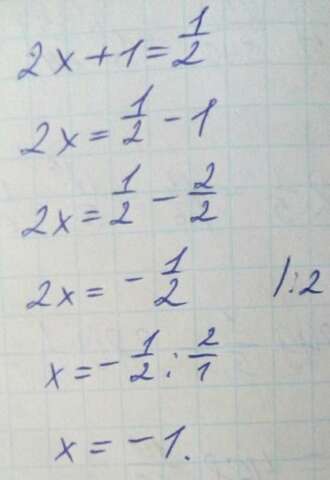 2x + 1 = 1/2
2x = 1/2 - 1
2x = 1/2 - 2/2
2x = - 1/2 /:2
x = - 1/2 : 2/1
x = - 1.